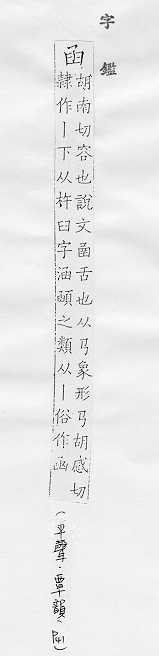 字鑑
函
胡南切容也說文圅舌也从𢎘象形𢎘胡感切
隸作丨下从杵臼字涵頤之類从丨俗作凾
(平聲.覃韻,P41)